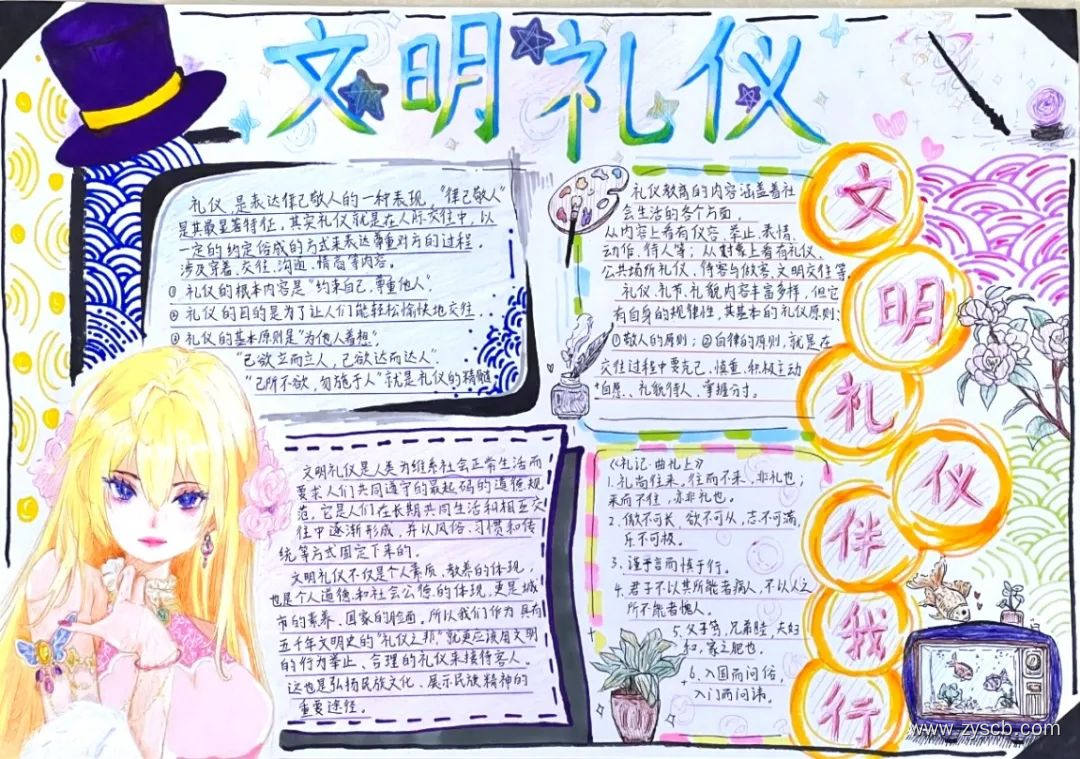 文明礼仪
礼仪是表达律己敬人的一种表现，“律己敬人”
是其最显著特征，其实礼仪就是在人际交往中，以
一定的约定俗成的方式来表达尊重对方的过程，
涉及穿着、交往、沟通、情商等内容。
① 礼仪的根本内容是“约束自己，尊重他人”
② 礼仪的目的是为了让人们能轻松愉快地交往．
③ 礼仪的基本原则是“为他人着想”
“己欲立而立人，己欲达而达人”
“己所不欲，勿施于人”就是礼仪的精髓
礼仪教育的内容涵盖着社
会生活的各个方面，
从内容上看有仪容、举止、表情、
动作、待人等；从对象上看有礼仪、
公共场所礼仪、待客与做客、文明交往等
礼仪、礼节、礼貌内容丰富多样，但它
有自身的规律性，其基本的礼仪原则：
①敬人的原则；②自律的原则，就是在
交往过程中要克己，慎重、积极主动
自愿、礼貌待人、掌握分寸。
文明礼仪伴我行
文明礼仪是人类为维系社会正常生活而
要求人们共同遵守的最起码的道德规
范，它是人们在长期共同生活和相互交
往中逐渐形成，并以风俗、习惯和传
统等方式固定下来的。
文明礼仪不仅是个人素质、教养的体现，
也是个人道德和社会公德的体现，更是城
市的素养、国家的脸面，所以我们作为具有
五千年文明史的“礼仪之邦”就更应该用文明
的行为举止、合理的礼仪来接待客人。
这也是弘扬民族文化、展示民族精神的
重要途径。
《礼记·曲礼上》
1. 礼尚往来，往而不来，非礼也；
来而不往，亦非礼也。
2. 傲不可长，欲不可从，志不可满，
乐不可极。
3. 谨于言而慎于行。
4. 君子不以其所能者病人，不以人之
所不能者愧人。
5. 父子笃，兄弟睦，夫妇
和，家之肥也．
6. 入国而问俗，
入门而问讳。
www.zyscb.com